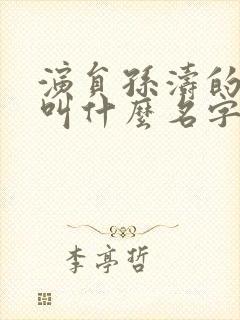 演員孫濤的
叫什麼名字
李亭哲